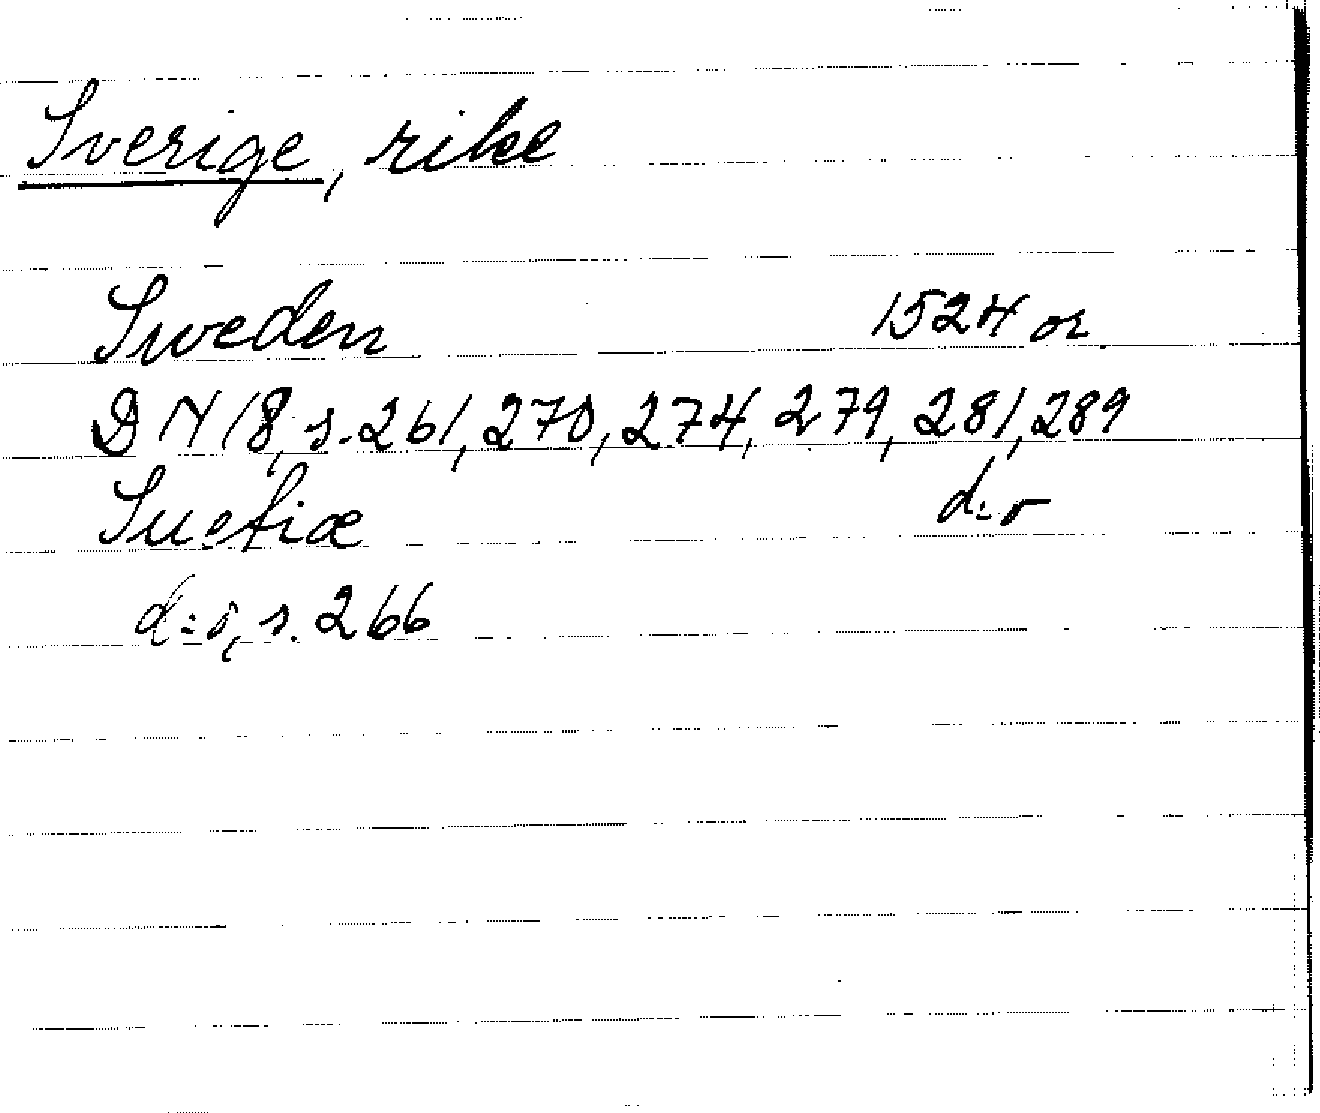 Sverige, rike
Sweden 1524 or
DN 18, s. 261, 270, 274, 279, 281, 289
Suetiæ d:o
d:o, s. 266